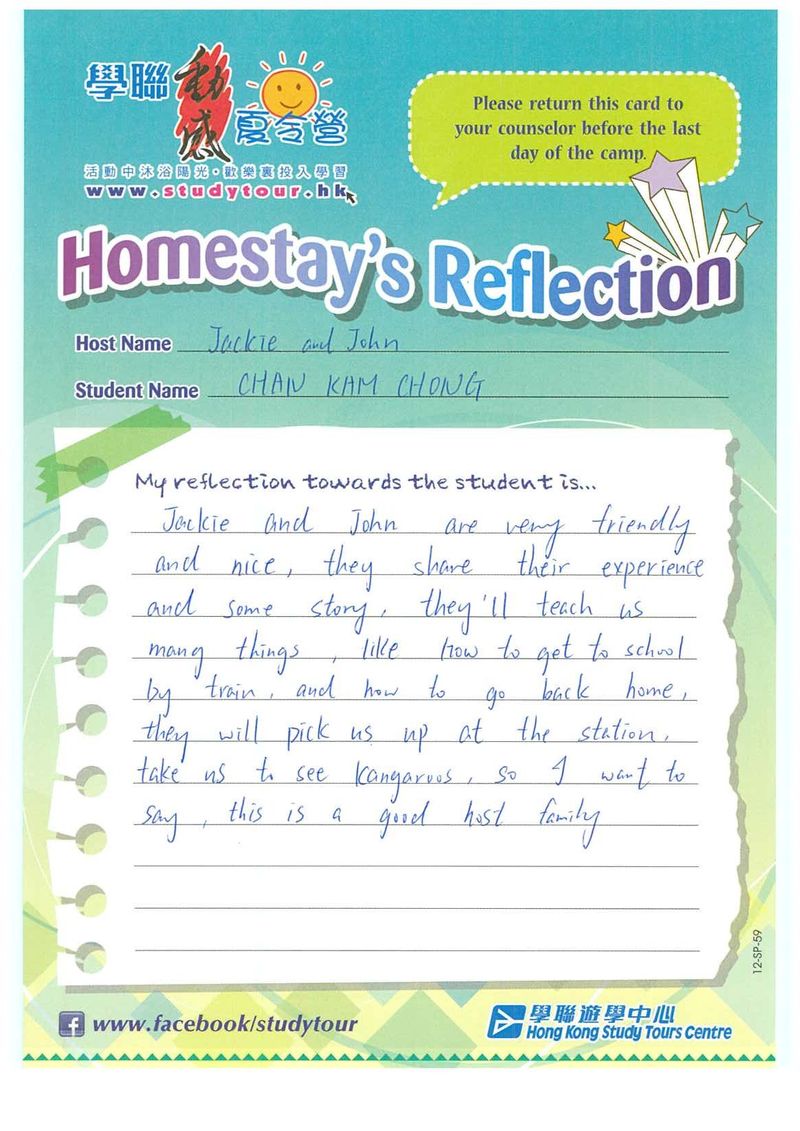 學聯
動感
夏令營
活動中沐浴陽光·歡樂裏投入學習
www.studytour.hk
Please return this card to
your counselor before the last
day of the camp.
Homestay's Reflection
Host Name Jackie and John
Student Name CHAN KAM CHONG
My reflection towards the student is...
Jackie and John are very friendly
and nice, they share their experience
and some story, they'll teach us
many things, like how to get to school
by train, and how to go back home,
they will pick us up at the station,
take us to see kangaroos, so I want to
say, this is a good host family
12-SP-59
www.facebook/studytour
學聯遊學中心
Hong Kong Study Tours Centre